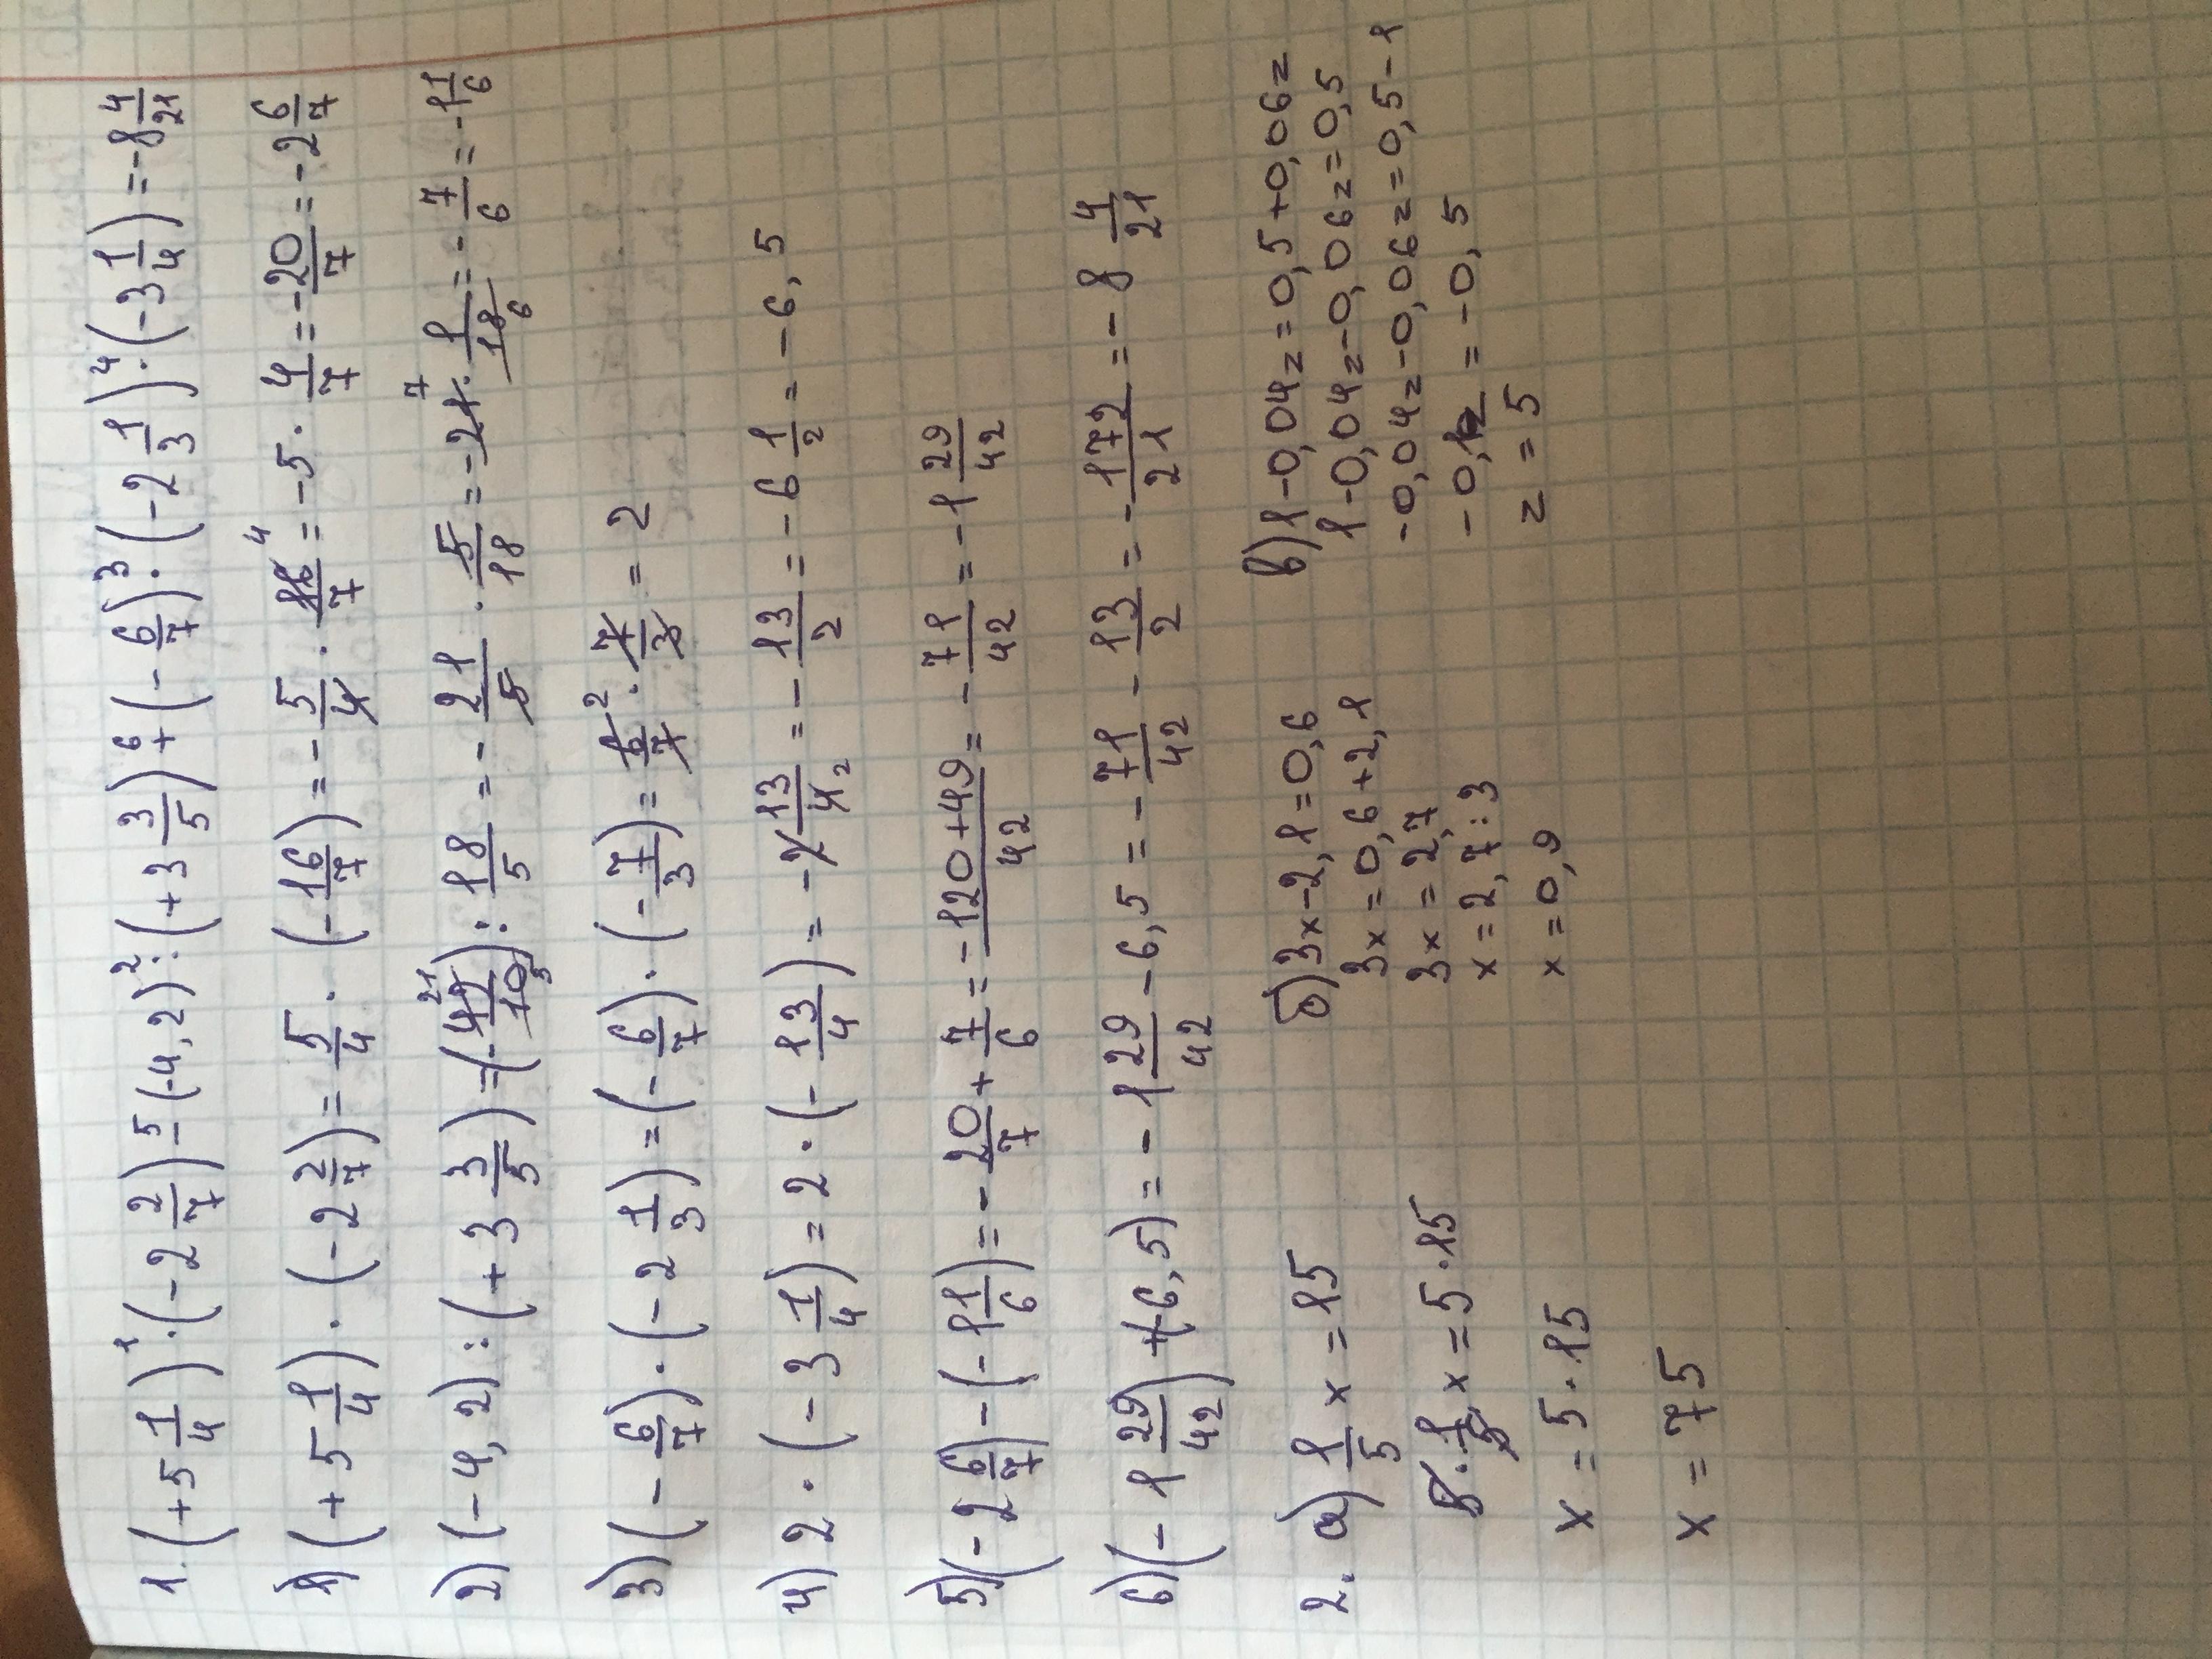 1. (+5 1/4)¹·(-2 2/7)-⁵(-4,2)²:(+3 3/5)+⁶(-6/7)³·(-2 1/3)⁴·(-3 1/4)=-8 4/21
1) (+5 1/4)·(-2 2/7)=5/4·(-16/7)=-5/4·16/7 4=-5·4/7=-20/7=-2 6/7
2) (-4,2):(+3 3/5)=(-42/10 21 5):18/5=-21/5·5/18=-21 7·1/18 6=-7/6=-1 1/6
3) (-6/7)·(-2 1/3)=(-6/7)·(-7/3)=6/7 2·7/3=2
4) 2·(-3 1/4)=2·(-13/4)=-2 13/4 2=-13/2=-6 1/2=-6,5
5) (-2 6/7)-(-1 1/6)=-20/7+7/6=-120+49/42=-71/42=-1 29/42
6) (-1 29/42)+(-6,5)=-1 29/42-6,5=-71/42-13/2=-172/21=-8 4/21
2. а) 1/5 x=15
5·1/5 x=5·15
x=5·15
x=75
б) 3x-2,1=0,6
3x=0,6+2,1
3x=2,7
x=2,7:3
x=0,9
в) 1-0,04z=0,5+0,06z
1-0,04z-0,06z=0,5
-0,04z-0,06z=0,5-1
-0,1z=-0,5
z=5